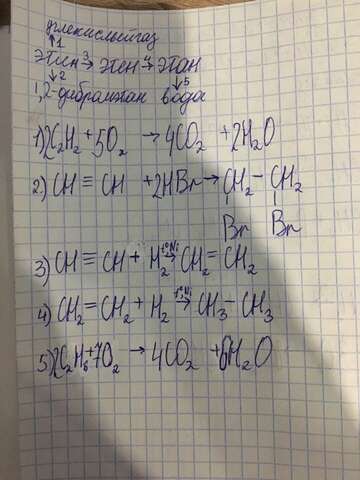 углекислый газ
↑1
этин 3→ этен 4→ этан
↓2 ↓5
1,2-дибромэтан вода
1) 2C₂H₂ + 5O₂ → 4CO₂ + 2H₂O
2) CH ≡ CH + 2HBr → CH₂ – CH₂
Br Br
3) CH ≡ CH + H₂ t°Ni→ CH₂ = CH₂
4) CH₂ = CH₂ + H₂ t°Ni→ CH₃ – CH₃
5) 2C₂H₆ + 7O₂ → 4CO₂ + 6H₂O